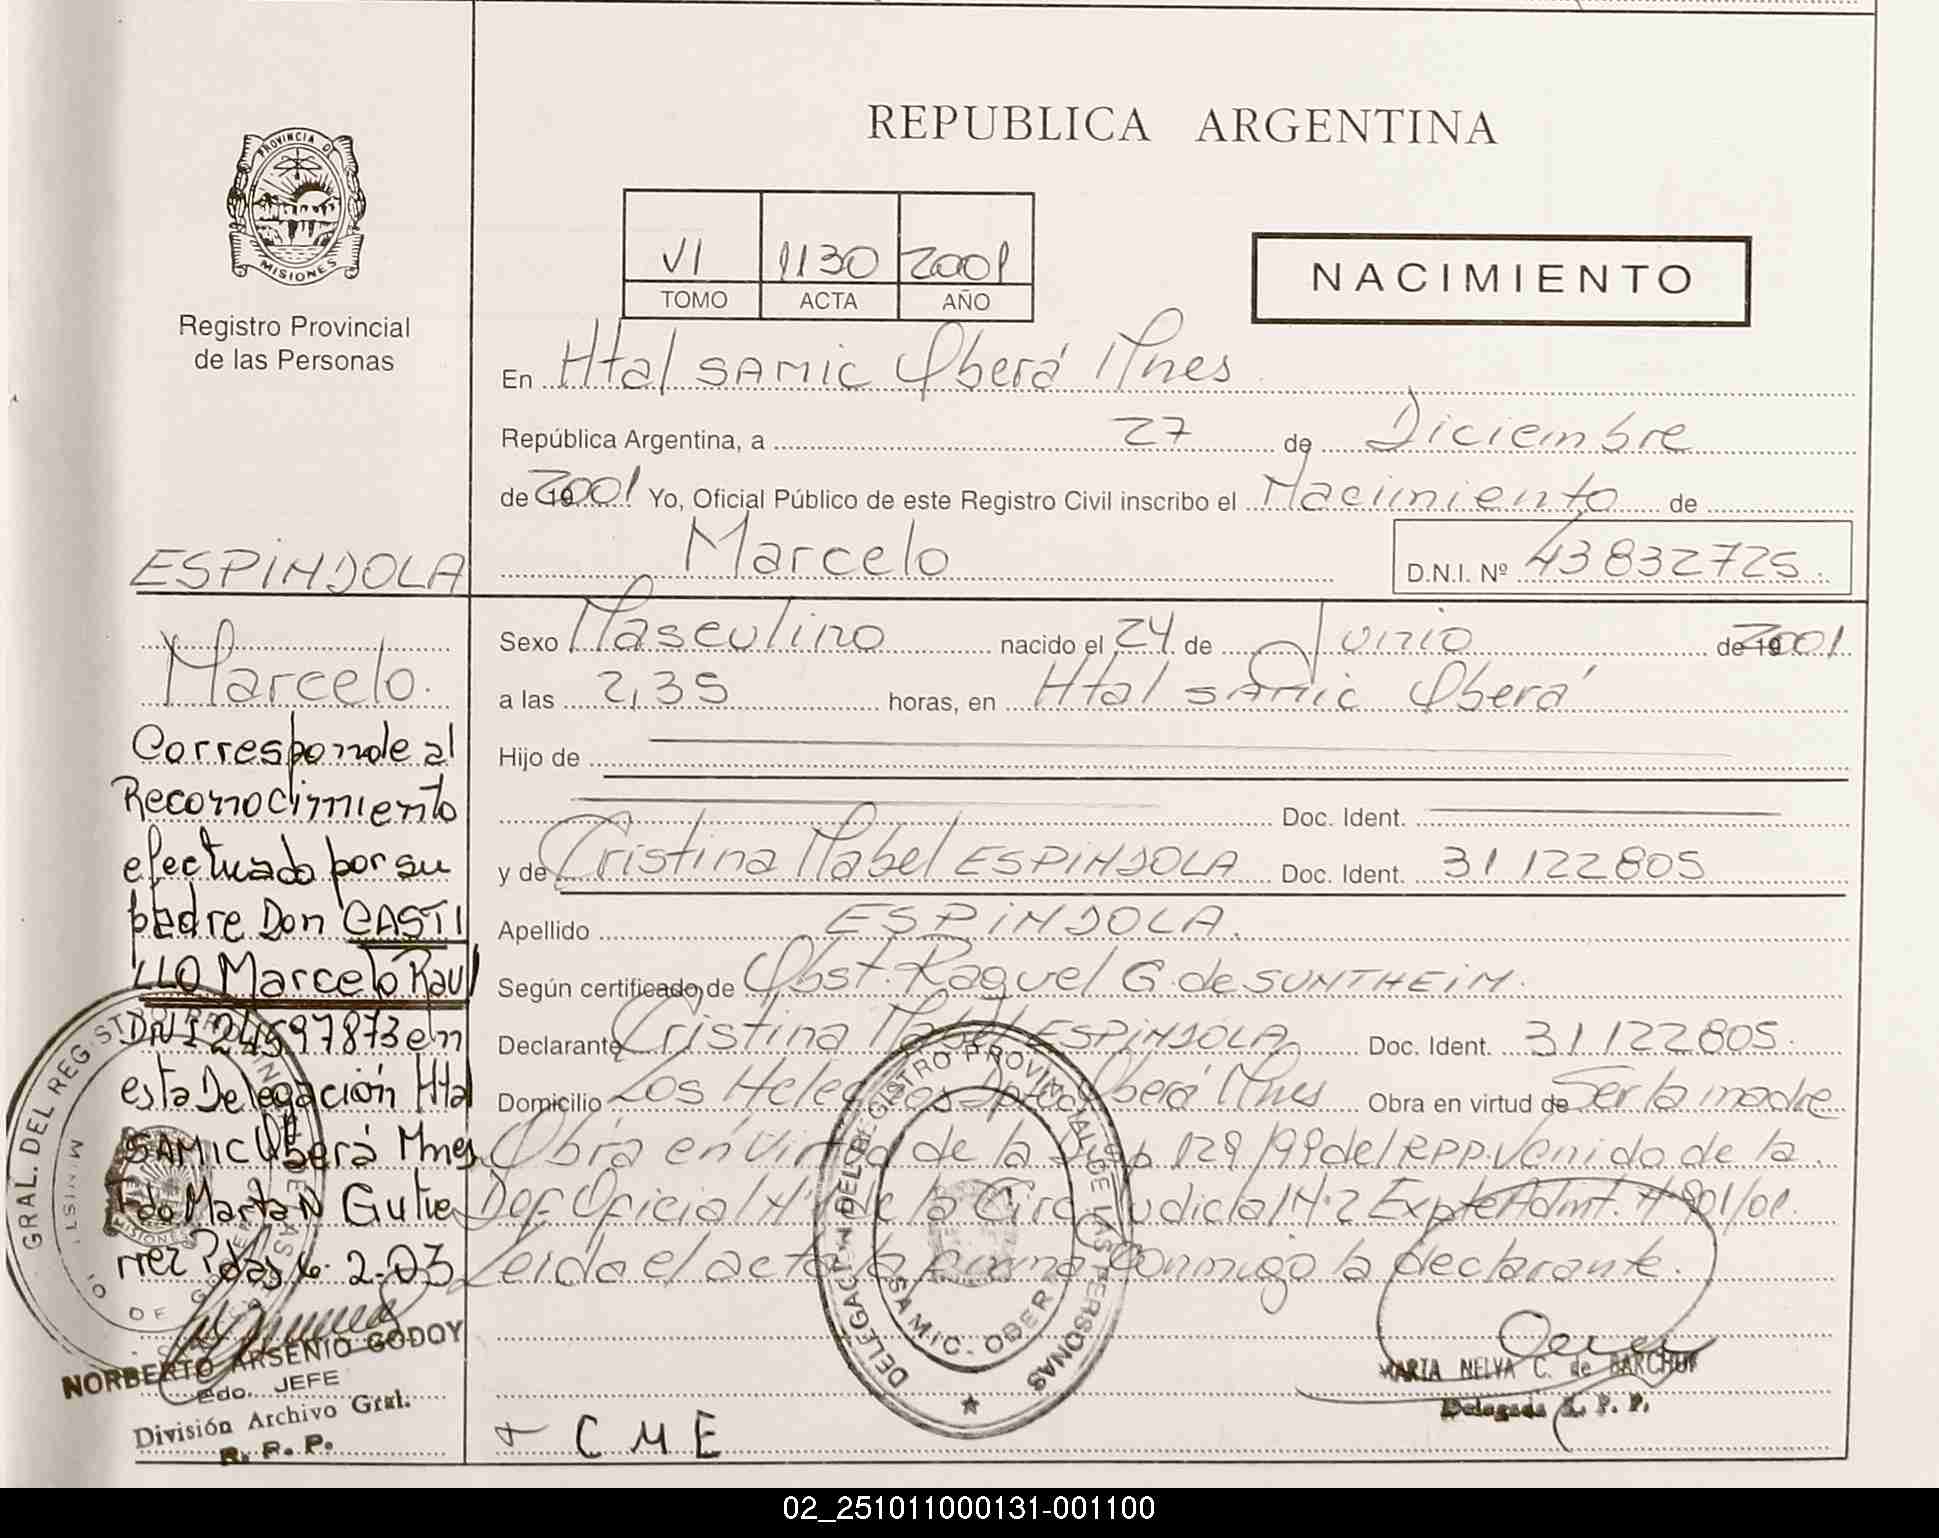 REPUBLICA ARGENTINA
PROVINCIA DE
MISIONES
Registro Provincial
de las Personas
VI 1130 2001
TOMO ACTA AÑO
NACIMIENTO
En Htal SAMIC Oberá Mnes
República Argentina, a 27 de Diciembre
de 2001 Yo, Oficial Público de este Registro Civil inscribo el Nacimiento de
Marcelo D.N.I. Nº 43832725.
Sexo Masculino nacido el 24 de Junio de 19 2001
a las 2,35 horas, en Htal SAMIC Oberá
Hijo de
Doc. Ident.
y de Cristina Mabel ESPINDOLA Doc. Ident. 31122805
Apellido ESPINDOLA.
Según certificado de Obst. Raquel G. de SUNTHEIM.
Declarante Cristina Mabel ESPINDOLA Doc. Ident. 31122805.
Domicilio Los Helechos Dpto Oberá Mnes Obra en virtud de Ser la madre
Obra en Virtud de la Disp 129/99 del RPP. Venido de la
Def Oficial Nº de la Circ Judicial Nº 2 Expte Admt. Nº 801/01.
Leida el acta la firma conmigo la declarante.
ESPINDOLA
Marcelo.
Corresponde al
Reconocimiento
efectuado por su
padre Don CASTI
LLO Marcelo Raul
DNI 24597873 en
esta Delegación Htal
SAMIC Oberá Mnes
Fdo Marta N Gutie
rrez Pdas 6-2-03
NORBERTO ARSENIO GODOY
Edo. JEFE
División Archivo Gral.
R. P. P.
+ C M E
DELEGACION DEL REGISTRO PROVINCIAL DE LAS PERSONAS
SAMIC - OBERA
MARIA NELVA C. de BARCHUK
Delegada R. P. P.
GRAL. DEL REGISTRO PROVINCIAL DE LAS
MISIONES
02_251011000131-001100